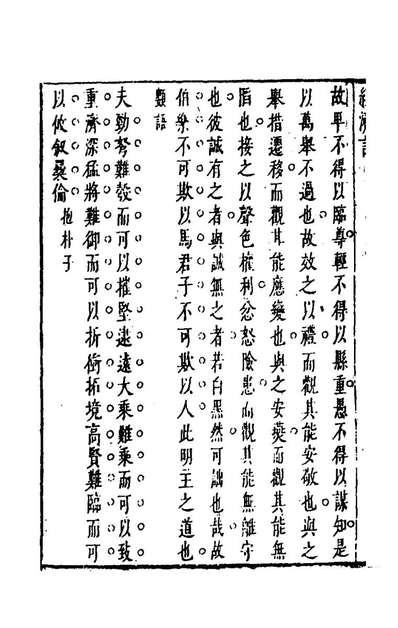 故卑不得以臨尊輕不得以縣重愚不得以謀知是
以萬舉不過也故效之以禮而觀其能安敬也與之
舉措遷移而觀其能應變也與之安燕而觀其能無
陷也接之以聲色權利忿怒險患而觀其能無離守
也彼誠有之者與誠無之者若白黑然可詘也哉故
伯樂不可欺以馬君子不可欺以人此明主之道也
類語
夫勁弩難彀而可以摧堅逮遠大乘難乘而可以致
重濟深猛將難御而可以折衝拓境高賢難臨而可
以攸叙彜倫 抱朴子